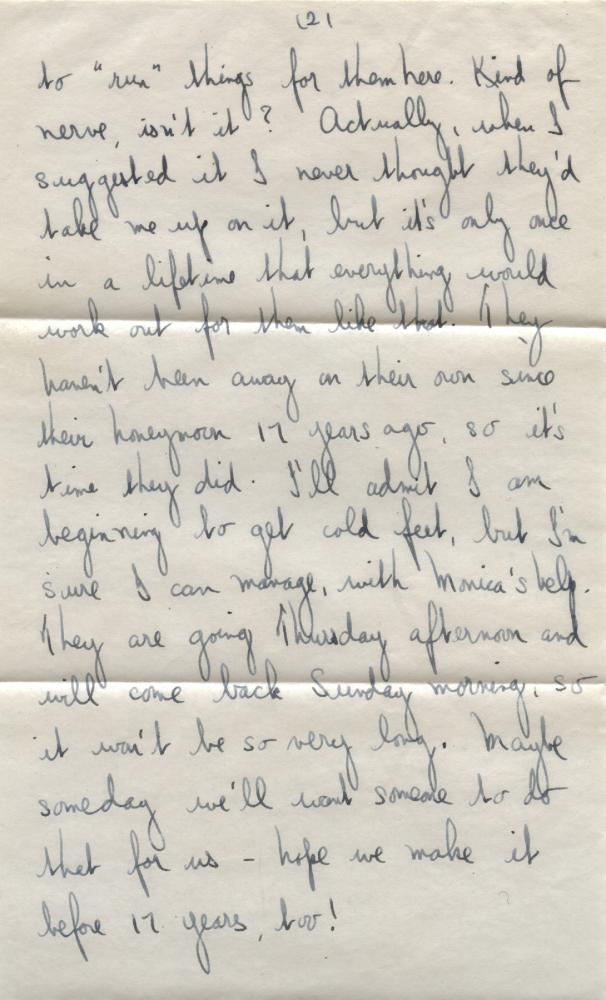 (2)
to "run" things for them here. Kind of
nerve, isn't it? Actually, when I
suggested it I never thought they'd
take me up on it, but it's only once
in a lifetime that everything would
work out for them like that. They
haven't been away on their own since
their honeymoon 17 years ago, so it's
time they did. I'll admit I am
beginning to get cold feet, but I'm
sure I can manage, with Monica's help.
They are going Thursday afternoon and
will come back Sunday morning, so
it won't be so very long. Maybe
someday we'll want someone to do
that for us - hope we make it
before 17 years, too!